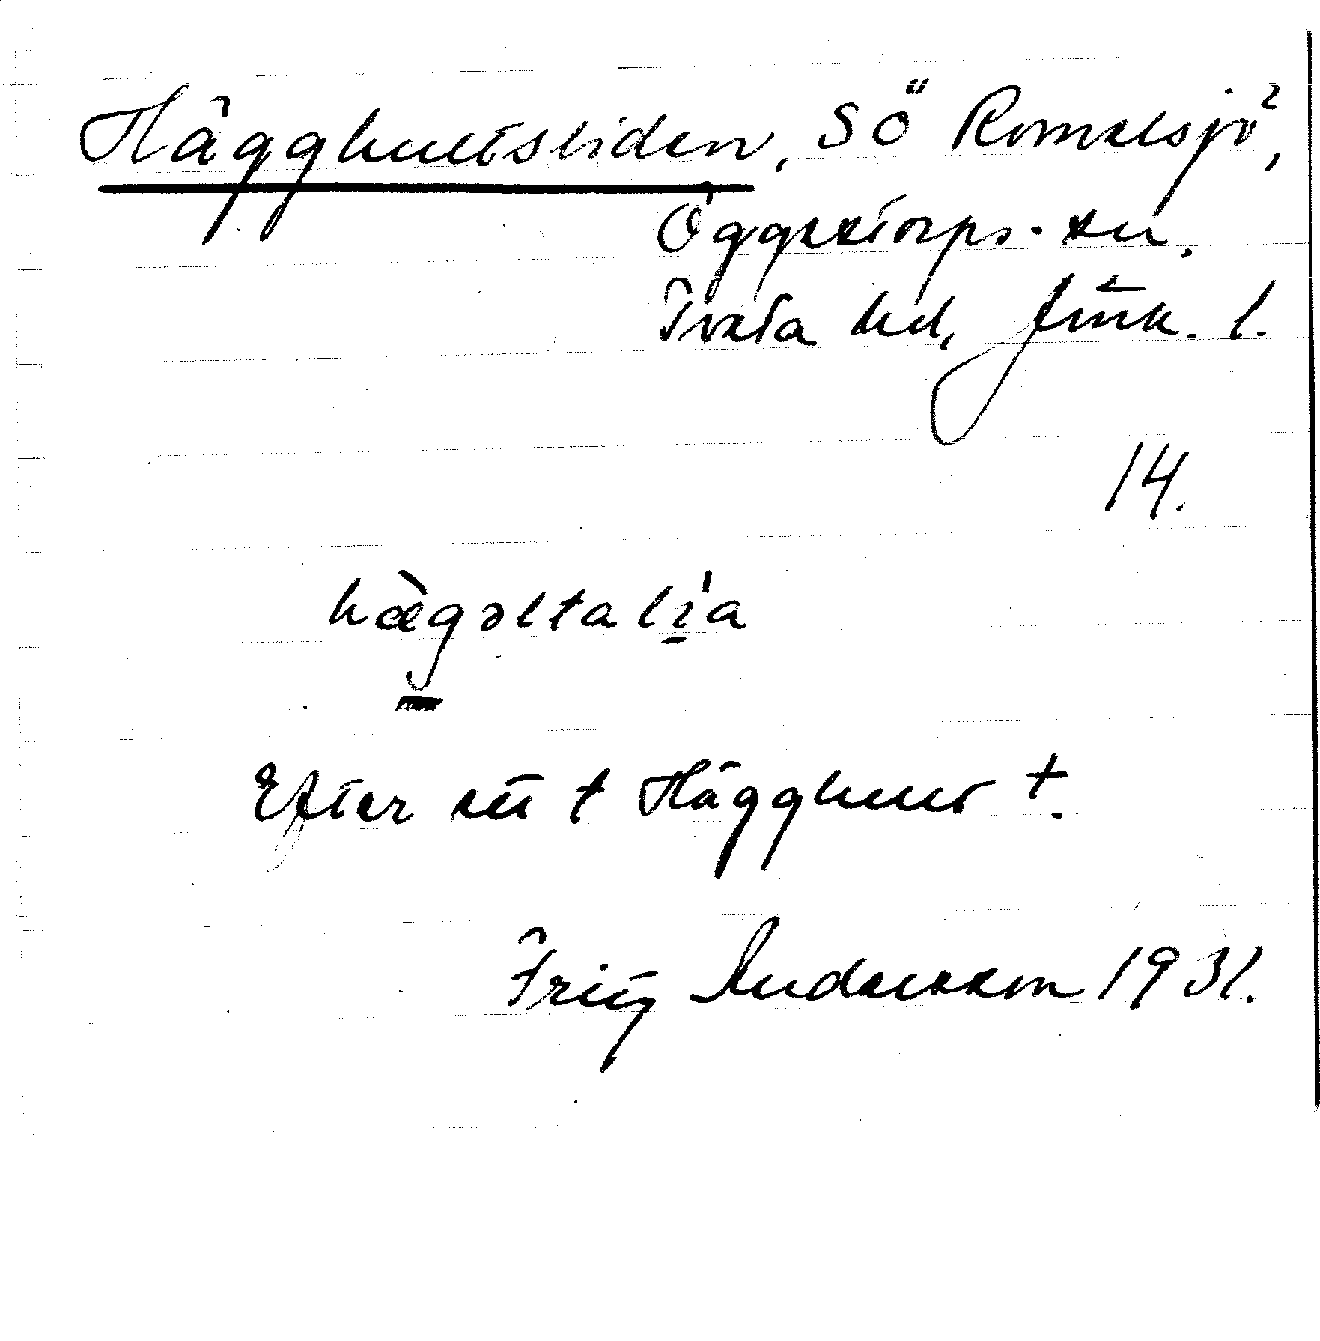 Hägghultsliden, SÖ Romelsjö,
Öggestorps sn.
Tveta hd, Jönk. l.
14.
hægəltalia
Efter ett † Hägghult †.
Fritz Andersson 1931.